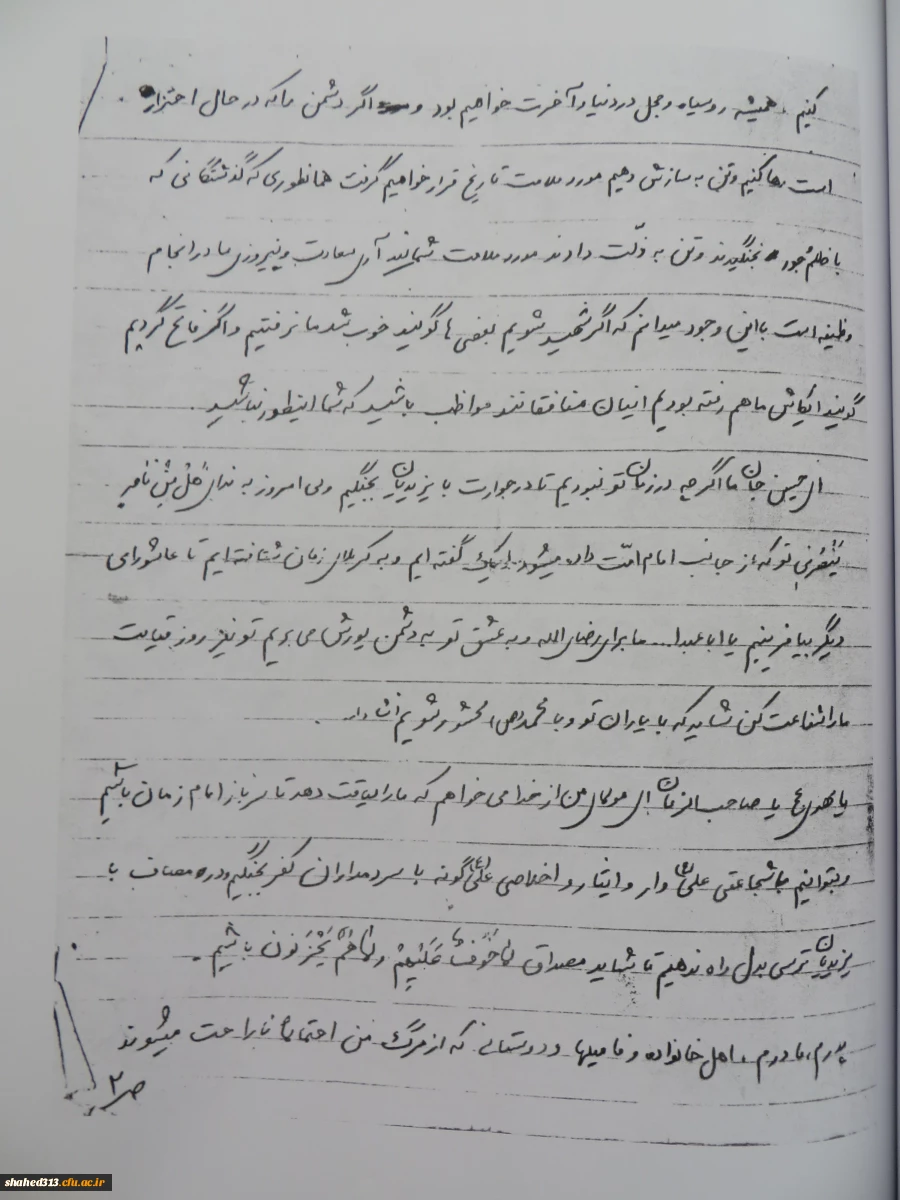 کنیم، همیشه روسیاه و خجل در دنیا و آخرت خواهیم بود و اگر دشمن ما که در حال احتزار
است رها کنیم و تن به سازش دهیم مورد ملامت تاریخ قرار خواهیم گرفت همانطوری که گذشتگانی که
با ظلم جور نجنگیدند و تن به ذلّت دادند مورد ملامت شمایند آری سعادت و پیروزی ما در انجام
وظیفه است با این وجود میدانم که اگر شهید شویم بعضی ها گویند خوب شد ما نرفتیم و اگر فاتح گردیم
گویند ایکاش ما هم رفته بودیم اینان منافقانند مواظب باشید که شما اینطور نباشید.
ای حسین جان ما اگر چه در زمان تو نبودیم تا در جوارت با یزیدیان بجنگیم ولی امروز به ندای هَل مِن ناصر
یَنصُرنی تو که از جانب امام امّت داده میشود لبیک گفته ایم و به کربلای زمان شتافته ایم تا عاشورای
دیگر بیافرینیم یا اباعبدا... ما برای رضای الله و به عشق تو به دشمن یورش می بریم تو نیز روز قیامت
ما را شفاعت کن شاید که با یاران تو و با محمد(ص) محشور شویم انشاءا...
یا مهدی عج یا صاحب الزمان ای مولای من از خدا می خواهم که ما را لیاقت دهد تا سرباز امام زمان باشیم
و بتوانیم با شجاعتی علی وار و ایثار و اخلاصی علی گونه با سردمداران کفر بجنگیم و در مصاف با
یزیدیان ترسی بدل راه ندهیم تا شاید مصداق لاخَوفٌ عَلَیهِم وَلاهُم یَحزَنون باشیم.
پدرم، مادرم، اهل خانواده و فامیلها و دوستانی که از مرگ من احتمالاً ناراحت میشوند
ص۲
shahed313.cfu.ac.ir